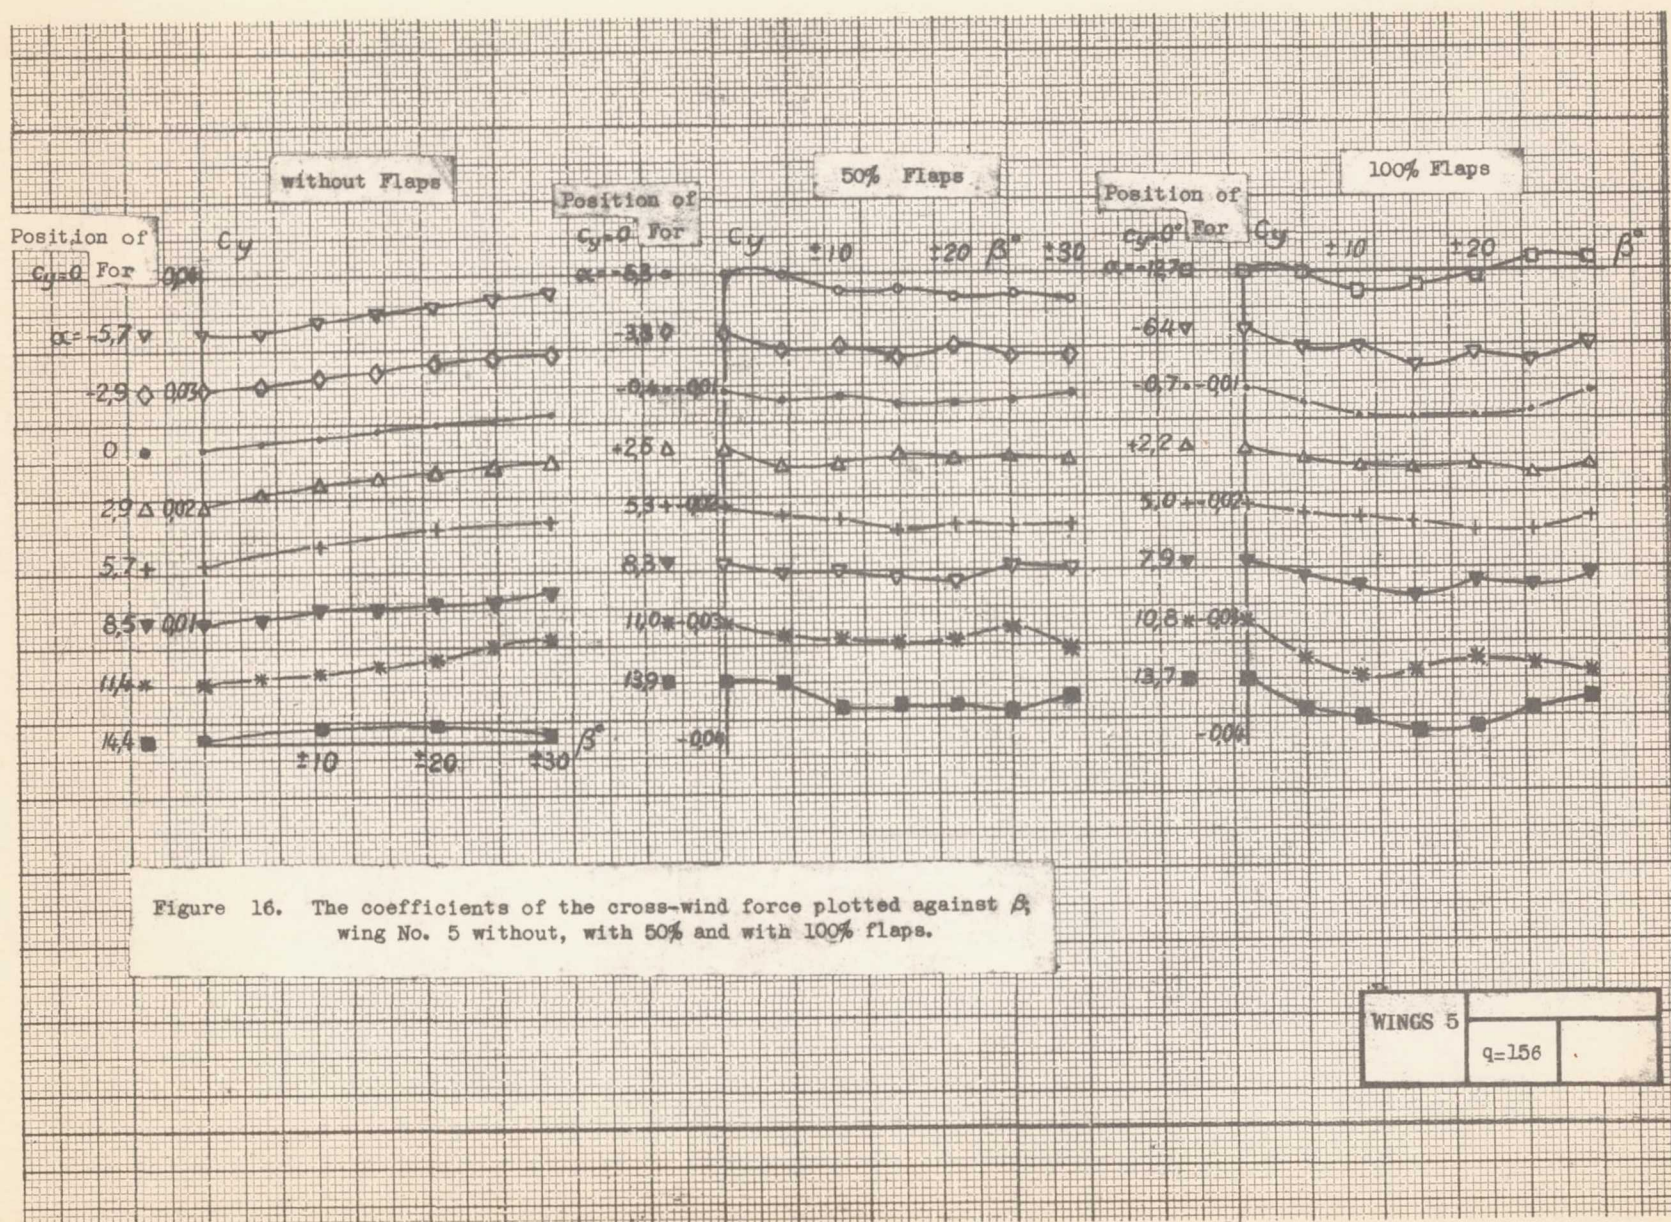 without Flaps
Position of
Cy=0 For
Cy
0,04
α=-5,7
-2,9 0,03
0
2,9 0,02
5,7
8,5 0,01
11,4
14,4
±10 ±20 ±30 β°
50% Flaps
Position of
Cy=0 For
Cy ±10 ±20 β° ±30
-0,4 -0,01
+2,5
5,3 -0,02
8,3
11,0 -0,03
13,9
-0,04
100% Flaps
Position of
Cy=0° For
Cy ±10 ±20 β°
α=-12,7
-6,4
-0,7 -0,01
+2,2
5,0 -0,02
7,9
10,8 -0,03
13,7
-0,04
Figure 16. The coefficients of the cross-wind force plotted against β;
wing No. 5 without, with 50% and with 100% flaps.
WINGS 5
q=156